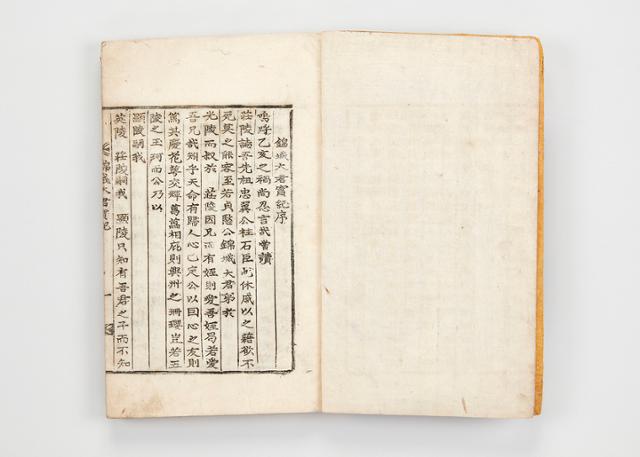 錦城大君實紀序
嗚呼乙亥之禍尚忍言哉嘗讀
莊陵誌吾先祖忠翼公柱石臣 休戚以之雖欲不
死莫之能容至若貞愍公錦城大君弟於
光陵而叔於 莊陵因兄而有姪則愛吾姪局若愛
吾兄哉矧乎天命有歸人心已定公以因心之友則
篤其慶花萼交輝葛藟相庇則興州之珊瓔豈若五
陵之玉珂而公乃以
顯陵嗣我
英陵 莊陵嗣我 顯陵只知有吾君之子而不知
錦城大君實紀 一